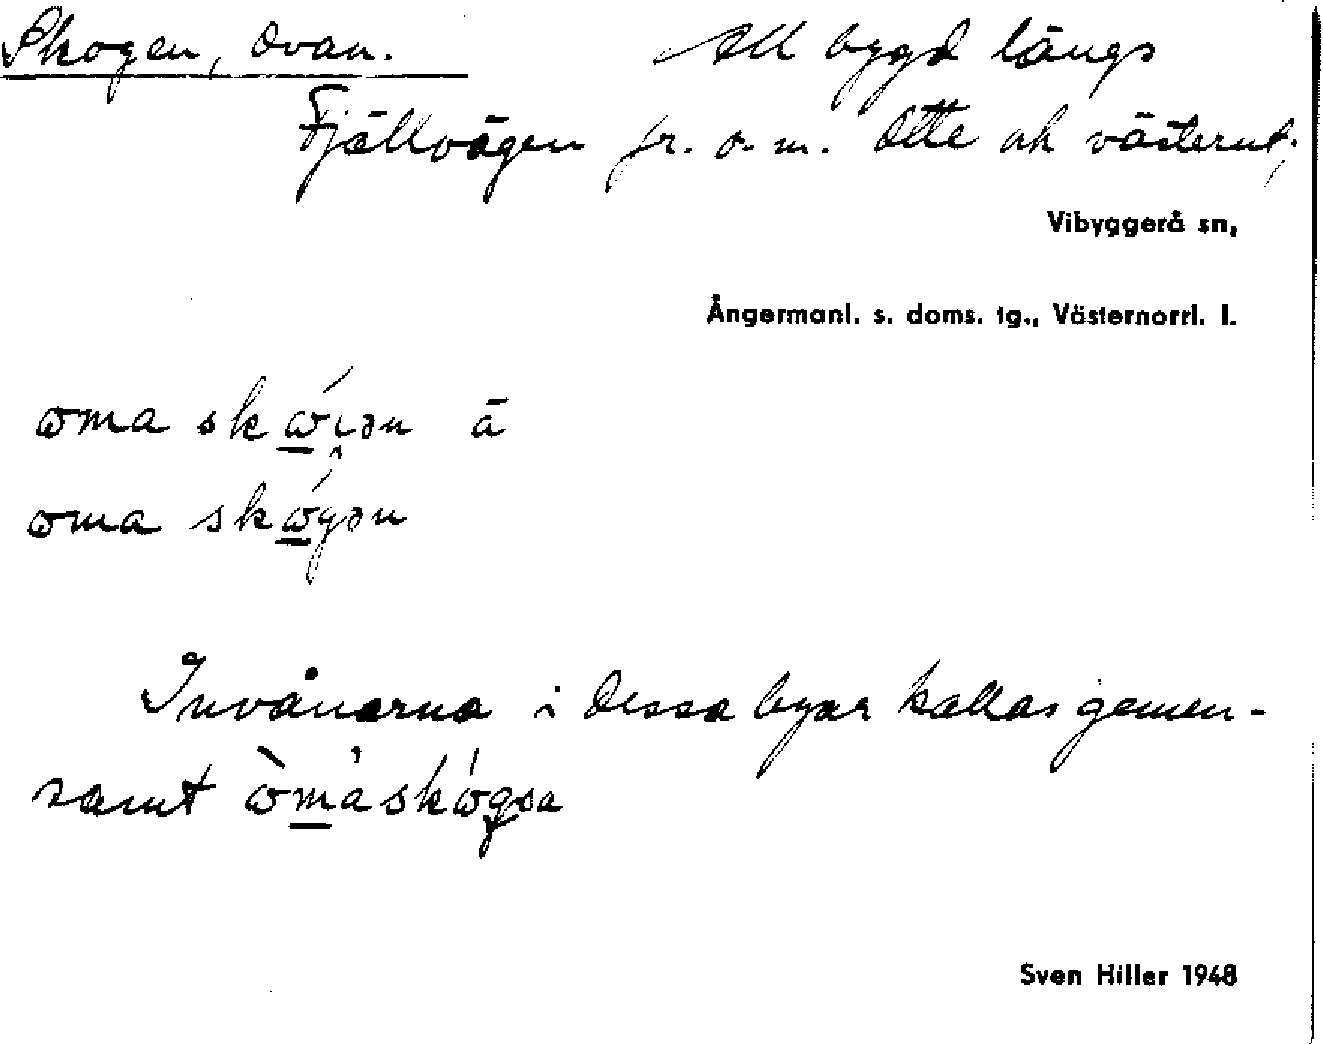 Skogen, Ovan. All bygd längs
Fjällvägen fr. o. m. Dette och västerut.
Vibyggerå sn,
Ångermanl. s. doms. tg., Västernorrl. l.
oma
oma
Invånarna i dessa byar kallas gemen-
samt
Sven Hiller 1948